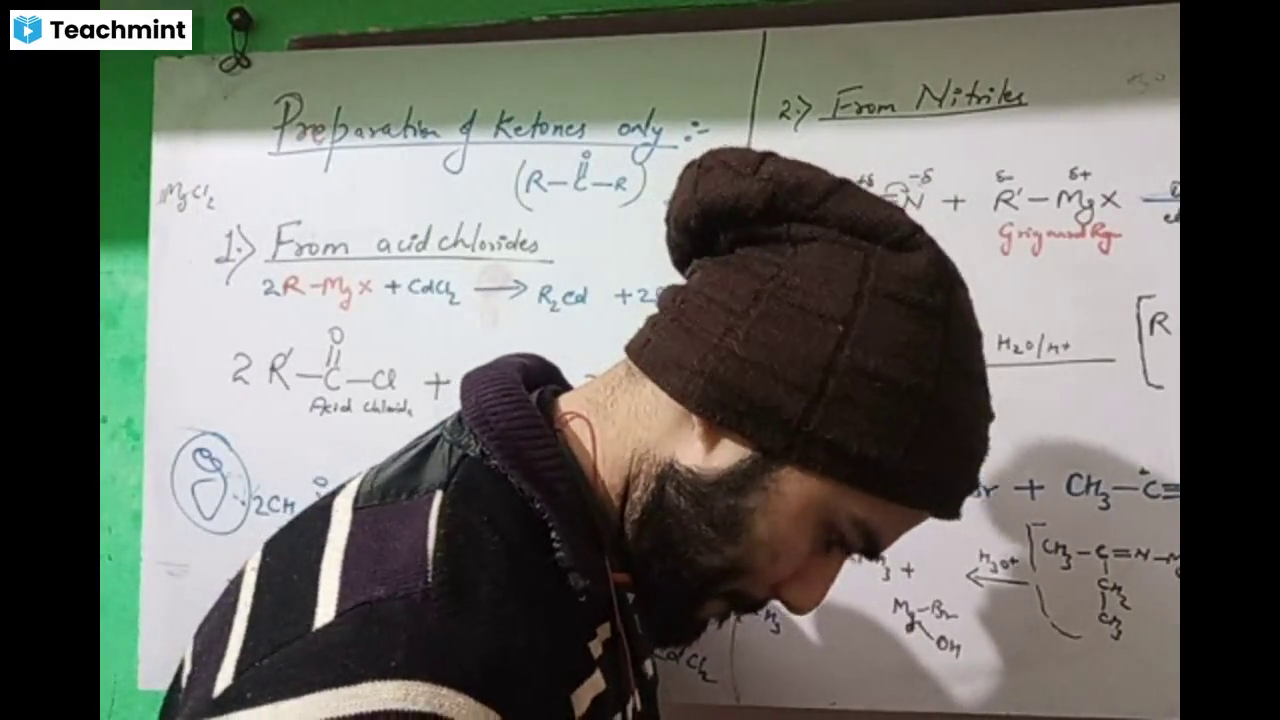 Teachmint
Preparation of Ketones only :-
(R–C–R)
O
MgCl2
1.) From acid chlorides
2R–MgX + CdCl2 → R2Cd + 2
O
2 R'–C–Cl +
Acid chloride
2CH
O
2.) From Nitriles
+δ –δ δ– δ+
≡N + R'–MgX
Grignard Rg
H2O/H+
[R
Br + CH3–C≡
+
H3O+
[CH3–C=N–M
CH2
CH3
Mg–Br
OH
H3
CdCl2